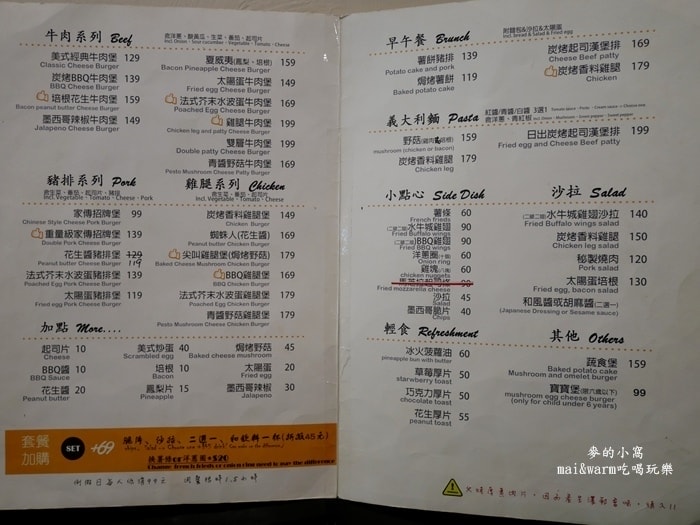 牛肉系列 Beef
美式經典牛肉堡 129
Classic Cheese Burger
炭烤BBQ牛肉堡 139
BBQ Cheese Burger
培根花生牛肉堡 159
Bacon peanut butter Cheese Burger
墨西哥辣椒牛肉堡 149
Jalapeno Cheese Burger
夏威夷(鳳梨、培根) 159
Bacon Pineapple Cheese Burger
太陽蛋牛肉堡 149
Fried Egg Cheese Burger
法式芥末水波蛋牛肉堡 169
Poached Egg Cheese Burger
雞腿牛肉堡 199
Chicken leg and patty Cheese Burger
雙層牛肉堡 199
Double patty Cheese Burger
青醬野菇牛肉堡 169
Pesto Mushroom Cheese Burger
豬排系列 Pork
含生菜、番茄、起司片、辣椒
Incl. Vegetable、Tomato、Cheese、Pork
家傳招牌堡 99
Chinese Style Cheese Pork Burger
重量級家傳招牌堡 139
Double Pork Cheese Burger
花生醬豬排堡 129
119
Peanut butter Cheese Burger
法式芥末水波蛋豬排堡 139
Poached Egg Pork Cheese Burger
太陽蛋豬排堡 119
Fried egg Pork Cheese Burger
雞腿系列 Chicken
含生菜、番茄、起司片
Incl. Vegetable、Tomato、Cheese
炭烤香料雞腿堡 149
Chicken Burger
蜘蛛人(花生醬) 169
Peanut butter Chicken Burger
尖叫雞腿堡(焗烤野菇) 179
Baked Cheese Mushroom Chicken Burger
BBQ雞腿堡 169
BBQ Chicken Burger
法式芥末水波蛋雞腿堡 179
Poached Egg Chicken Burger
青醬野菇雞腿堡 179
Pesto Mushroom Cheese Chicken Burger
加點 More....
起司片 10
Cheese
BBQ醬 10
BBQ Sauce
花生醬 20
Peanut butter
美式炒蛋 40
Scrambled egg
培根 10
Bacon
鳳梨片 15
Pineapple
焗烤野菇 45
Baked cheese mushroom
太陽蛋 20
Fried egg
墨西哥辣椒 30
Jalapeno
套餐加購 SET +69
早午餐 Brunch
附麵包&沙拉&太陽蛋
incl. bread & Salad & Fried egg
薯餅豬排 139
Potato cake and pork
焗烤薯餅 119
Baked potato cake
炭烤起司漢堡排 169
Cheese Beef patty
炭烤香料雞腿 179
Chicken
義大利麵 Pasta
紅醬/青醬/白醬 3選1
野菇(雞肉 培根) 159
mushroom (chicken or bacon)
炭烤香料雞腿 179
Chicken leg
日出炭烤起司漢堡排 199
Fried egg and Cheese Beef patty
小點心 Side Dish
薯條 60
French frieds
水牛城雞翅 90
Fried Buffalo wings
BBQ雞翅 90
Fried BBQ wings
洋蔥圈 60
Onion ring
雞塊 60
chicken nuggets
Fried mozzarella cheese
沙拉 45
Salad
墨西哥脆片 40
Chips
沙拉 Salad
水牛城雞翅沙拉 140
Fried Buffalo wings salad
炭烤香料雞腿 150
Chicken leg salad
秘製燒肉 120
Pork salad
太陽蛋培根 130
Fried egg, bacon salad
和風醬或胡麻醬(二選一)
(Japanese Dressing or Sesame sauce)
輕食 Refreshment
冰火菠蘿油 60
pineapple bun with butter
草莓厚片 50
starwberry toast
巧克力厚片 50
chocolate toast
花生厚片 55
peanut toast
其他 Others
蔬食堡 159
Baked potato cake
Mushroom and omelet burger
寶寶堡(限六歲以下) 99
mushroom beef burger
(only for child under 6 years)
麥的小窩
mai&warm吃喝玩樂